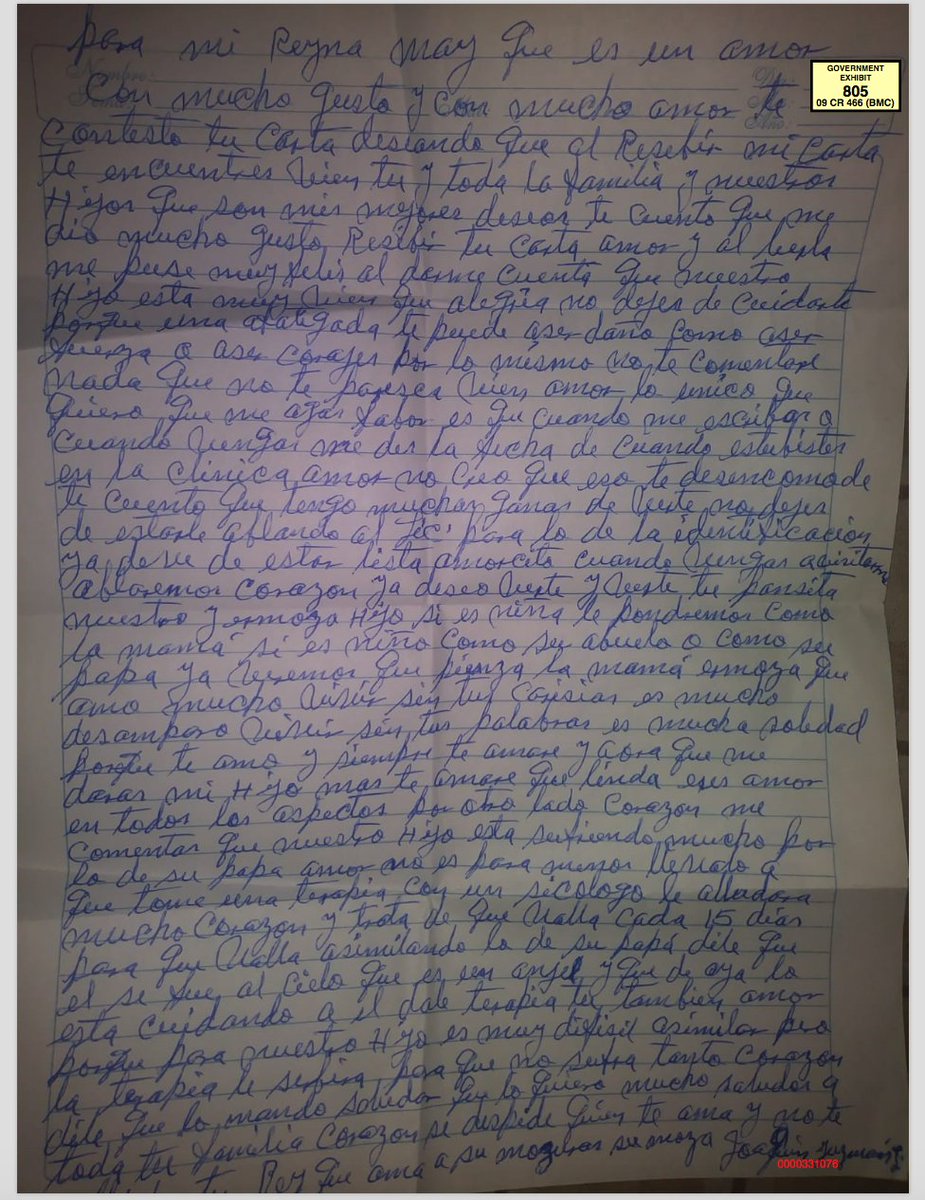 para mi Reyna may que es un amor
GOVERNMENT
EXHIBIT
805
09 CR 466 (BMC)
Nombre:
Con mucho gusto y con mucho amor te
contesto tu Carta deseando que al Resebir mi Carta
te encuentres vien tu y toda la familia y nuestros
Hijos que son mis mejores deseos te cuento que me
dio mucho gusto Resibir tu carta amor y al leerla
me puse muy felis al darme cuenta que nuestro
Hijo esta muy vien que alegria no dejes de cuidarte
porque una te puede aser daño como aser
fuerza o aser corajes por lo mismo no te comentare
nada que no te paresca vien amor lo unico que
quiero que me agas fabor es que cuando me escribas o
cuando vengas me des la fecha de cuando estubistes
en la clinica amor no creo que eso te desencomode
te cuento que tengo muchas ganas de verte no dejes
de estarle ablando al Lic. para lo de la identificacion
ya deve de estar lista amorcito cuando vengas
ablaremos corazon ya deseo verte y verte tu pansita
nuestro y ermozo Hijo si es niña le pondremos como
la mamá si es niño como su abuelo o como su
papa ya veremos que pienza la mamá ermoza que
amo mucho vivir sin tus carisias es mucho
desamparo vivir sin tus palabras es mucha soledad
porque te amo y siempre te amare y aora que me
daras mi Hijo mas te amare que linda eres amor
en todos los aspectos por otro lado corazon me
comentas que nuestro Hijo esta sufriendo mucho por
lo de su papa amor no es para menor llevalo a
que tome una terapia con un sicologo le alludara
mucho corazon y trata de que valla cada 15 dias
para que valla asimilando lo de su papá dile que
el se fue al cielo que es un anjel y que de aya lo
esta cuidando a el dale terapia tu tambien amor
porque para nuestro Hijo es muy dificil asimilar pero
la terapia le serbira para que no sufra tanto corazon
dile que lo mando saludar que lo quiero mucho saludos a
toda tu familia corazon se despide quien te ama y no te
Rey que ama a su Joaquin Guzman
0000331076